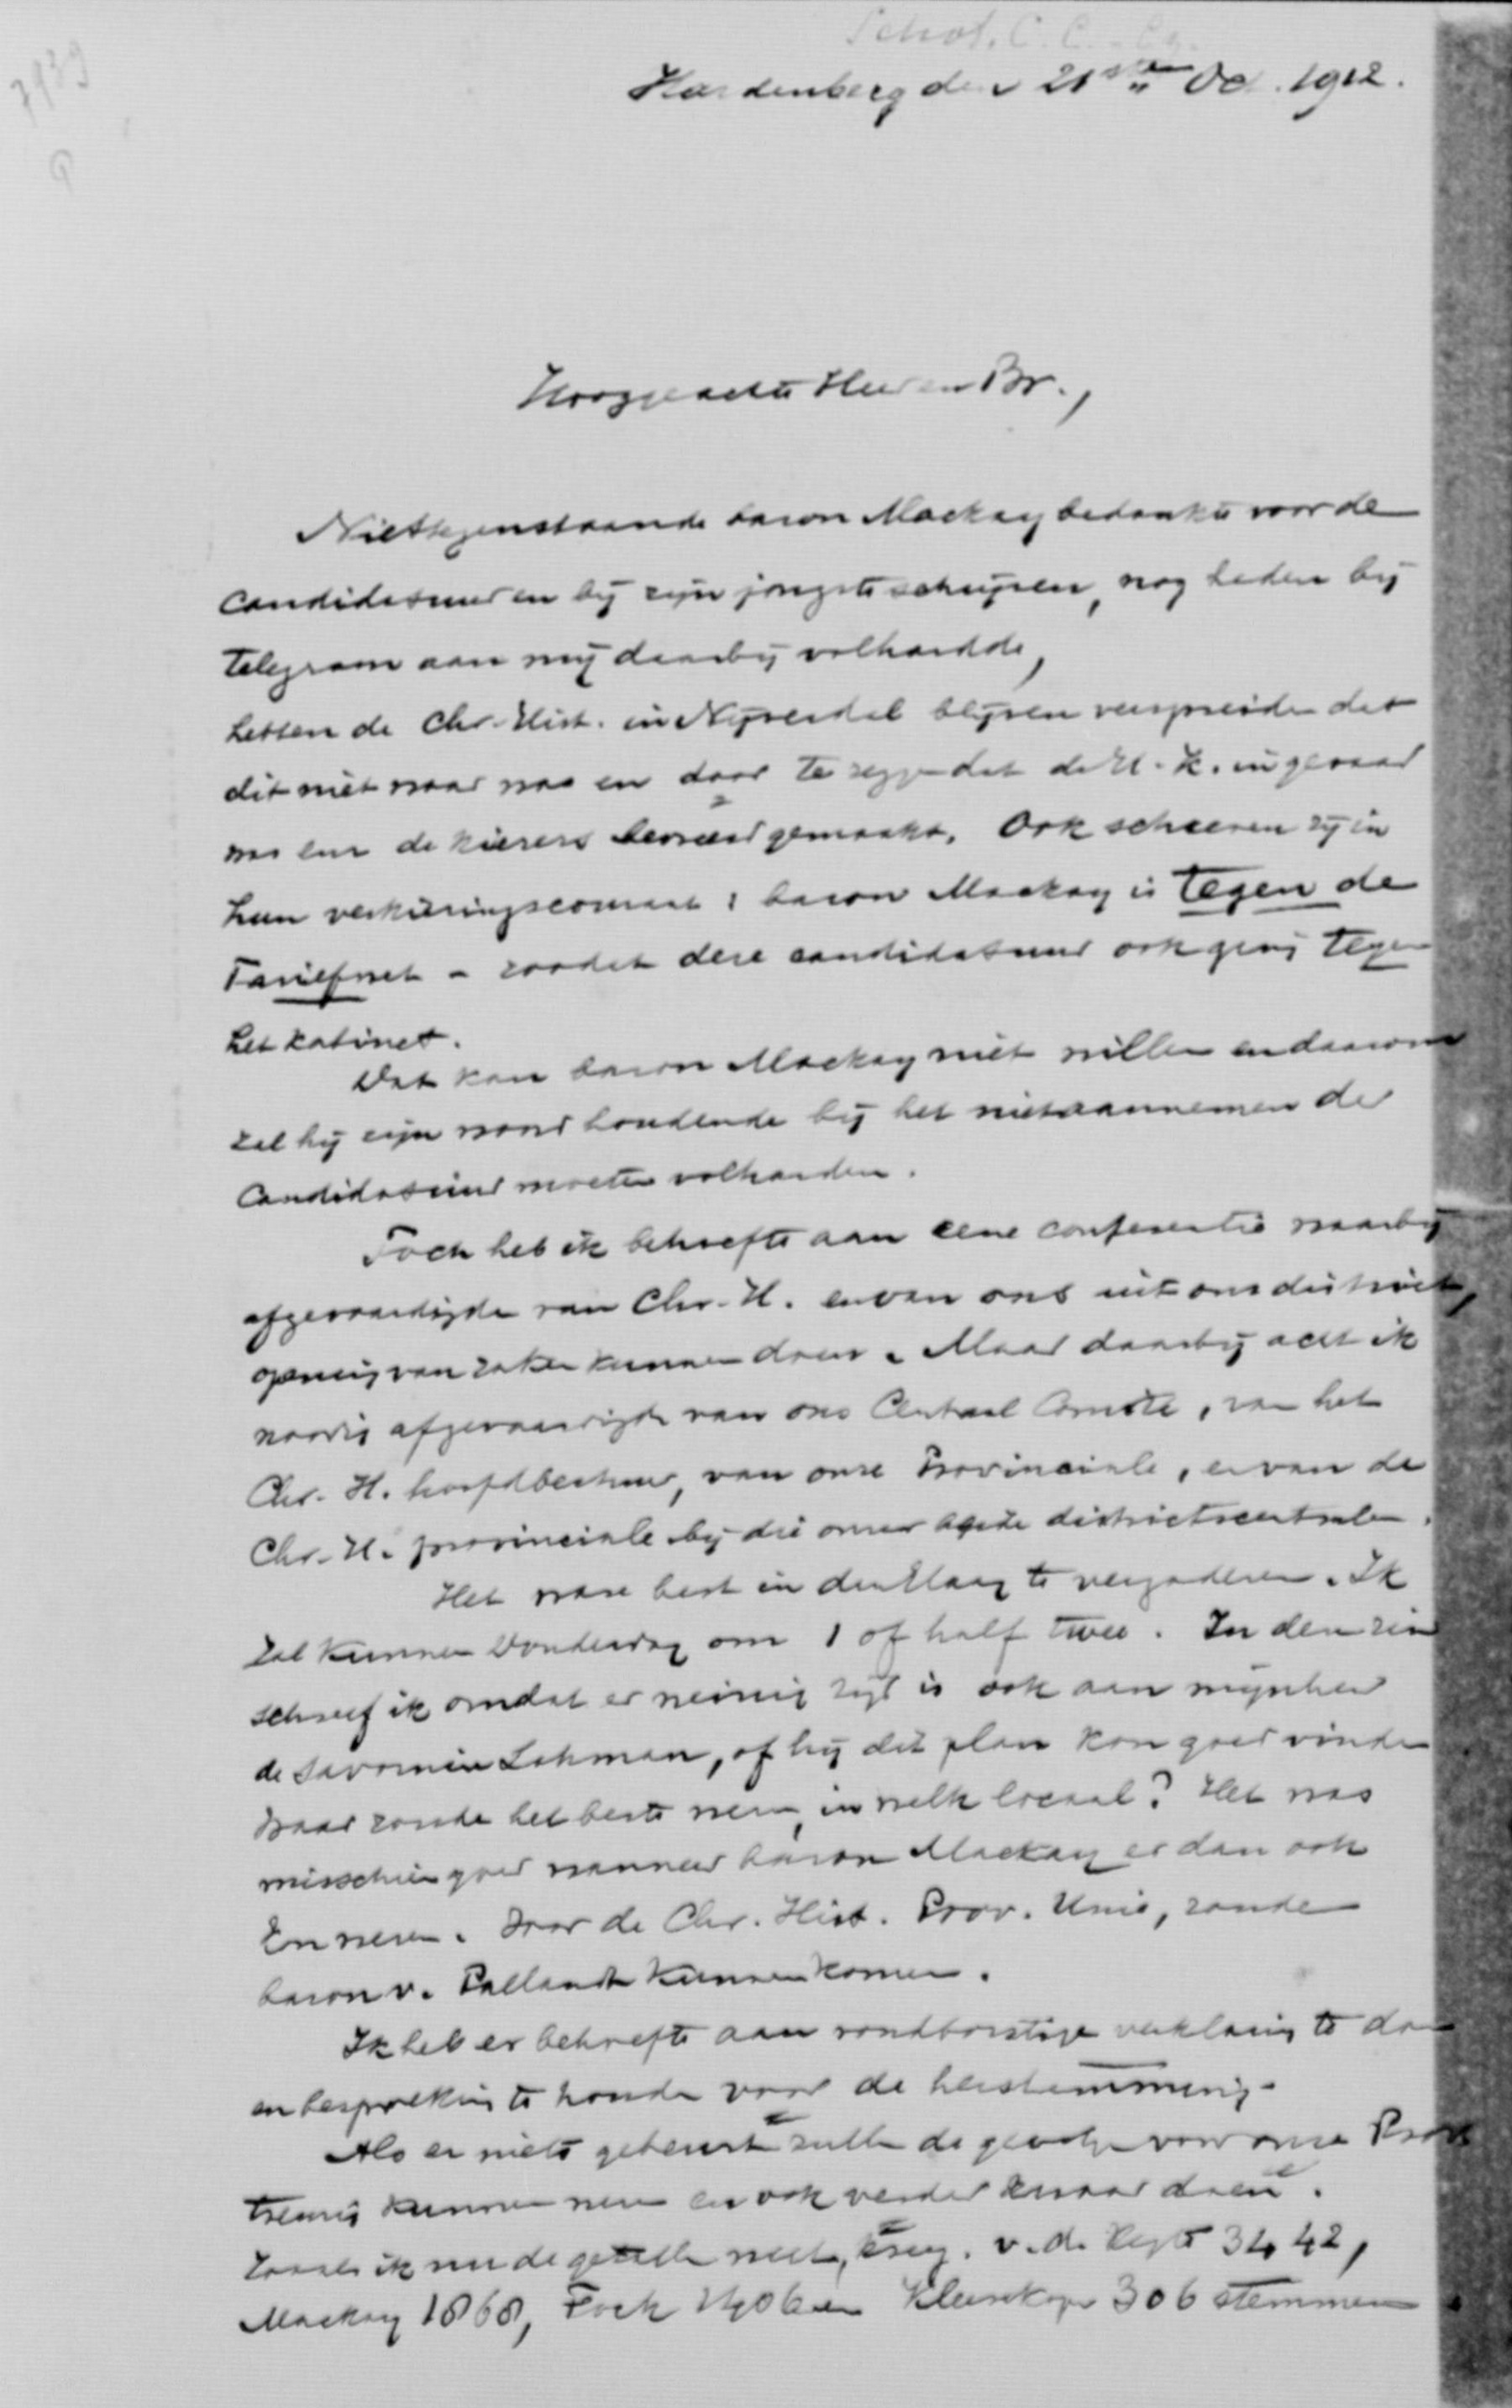 7939
Schot. C. C.
Hardenberg den 21sten Oct. 1912.
Hooggeachte Heer en Br.,
Niettegenstaande baron Mackay bedankte voor de
candidatuur en bij zijn jongste schrijven, nog heden bij
telegram aan mij daarbij volhardde,
lieten de Chr. Hist. in Nijverdal blijven verspreiden dat
dit niet waar was en door te zeggen dat de U. K. in gevaar
was en de kiezers bevreesd gemaakt. Ook schreven zij in
hun verkiezingscourant: baron Mackay is tegen de
Tariefwet – zoodat deze candidatuur ook ging tegen
het Kabinet.
Dat kan baron Mackay niet willen en daarom
zal hij zijn woord houdende bij het niet aannemen der
Candidatuur moeten volharden.
Toch heb ik behoefte aan eene conferentie waarbij
afgevaardigden van Chr. H. en van ons uit ons district,
opening van zaken kunnen doen. Maar daarbij acht ik
noodig afgevaardigden van ons Centraal Comité, van het
Chr. H. hoofdbestuur, van onze Provinciale, en van de
Chr. H. provinciale bij die onzer beide districtscentralen.
Het ware best in den Haag te vergaderen. Ik
zal kunnen Donderdag om 1 of half twee. In den zin
schreef ik omdat er weinig tijd is ook aan mijnheer
de Savornin Lohman, of hij dit plan kon goed vinden
Waar zoude het beste wezen, in welk locaal? Het was
misschien goed wanneer baron Mackay er dan ook
kon wezen. Voor de Chr. Hist. Prov. Unie, zoude
baron v. Pallandt kunnen komen.
Ik heb er behoefte aan rondborstige verklaring te doen
en bespreking te houden voor de herstemming.
Als er niets gebeurt zullen de gevolgen voor onze Prov
treurig kunnen wezen en ook verder kwaad doen.
Zooals ik nu de getallen weet, kreeg v. d. Vegte 3442,
Mackay 1868, Fock en Kleerekoper 306 stemmen